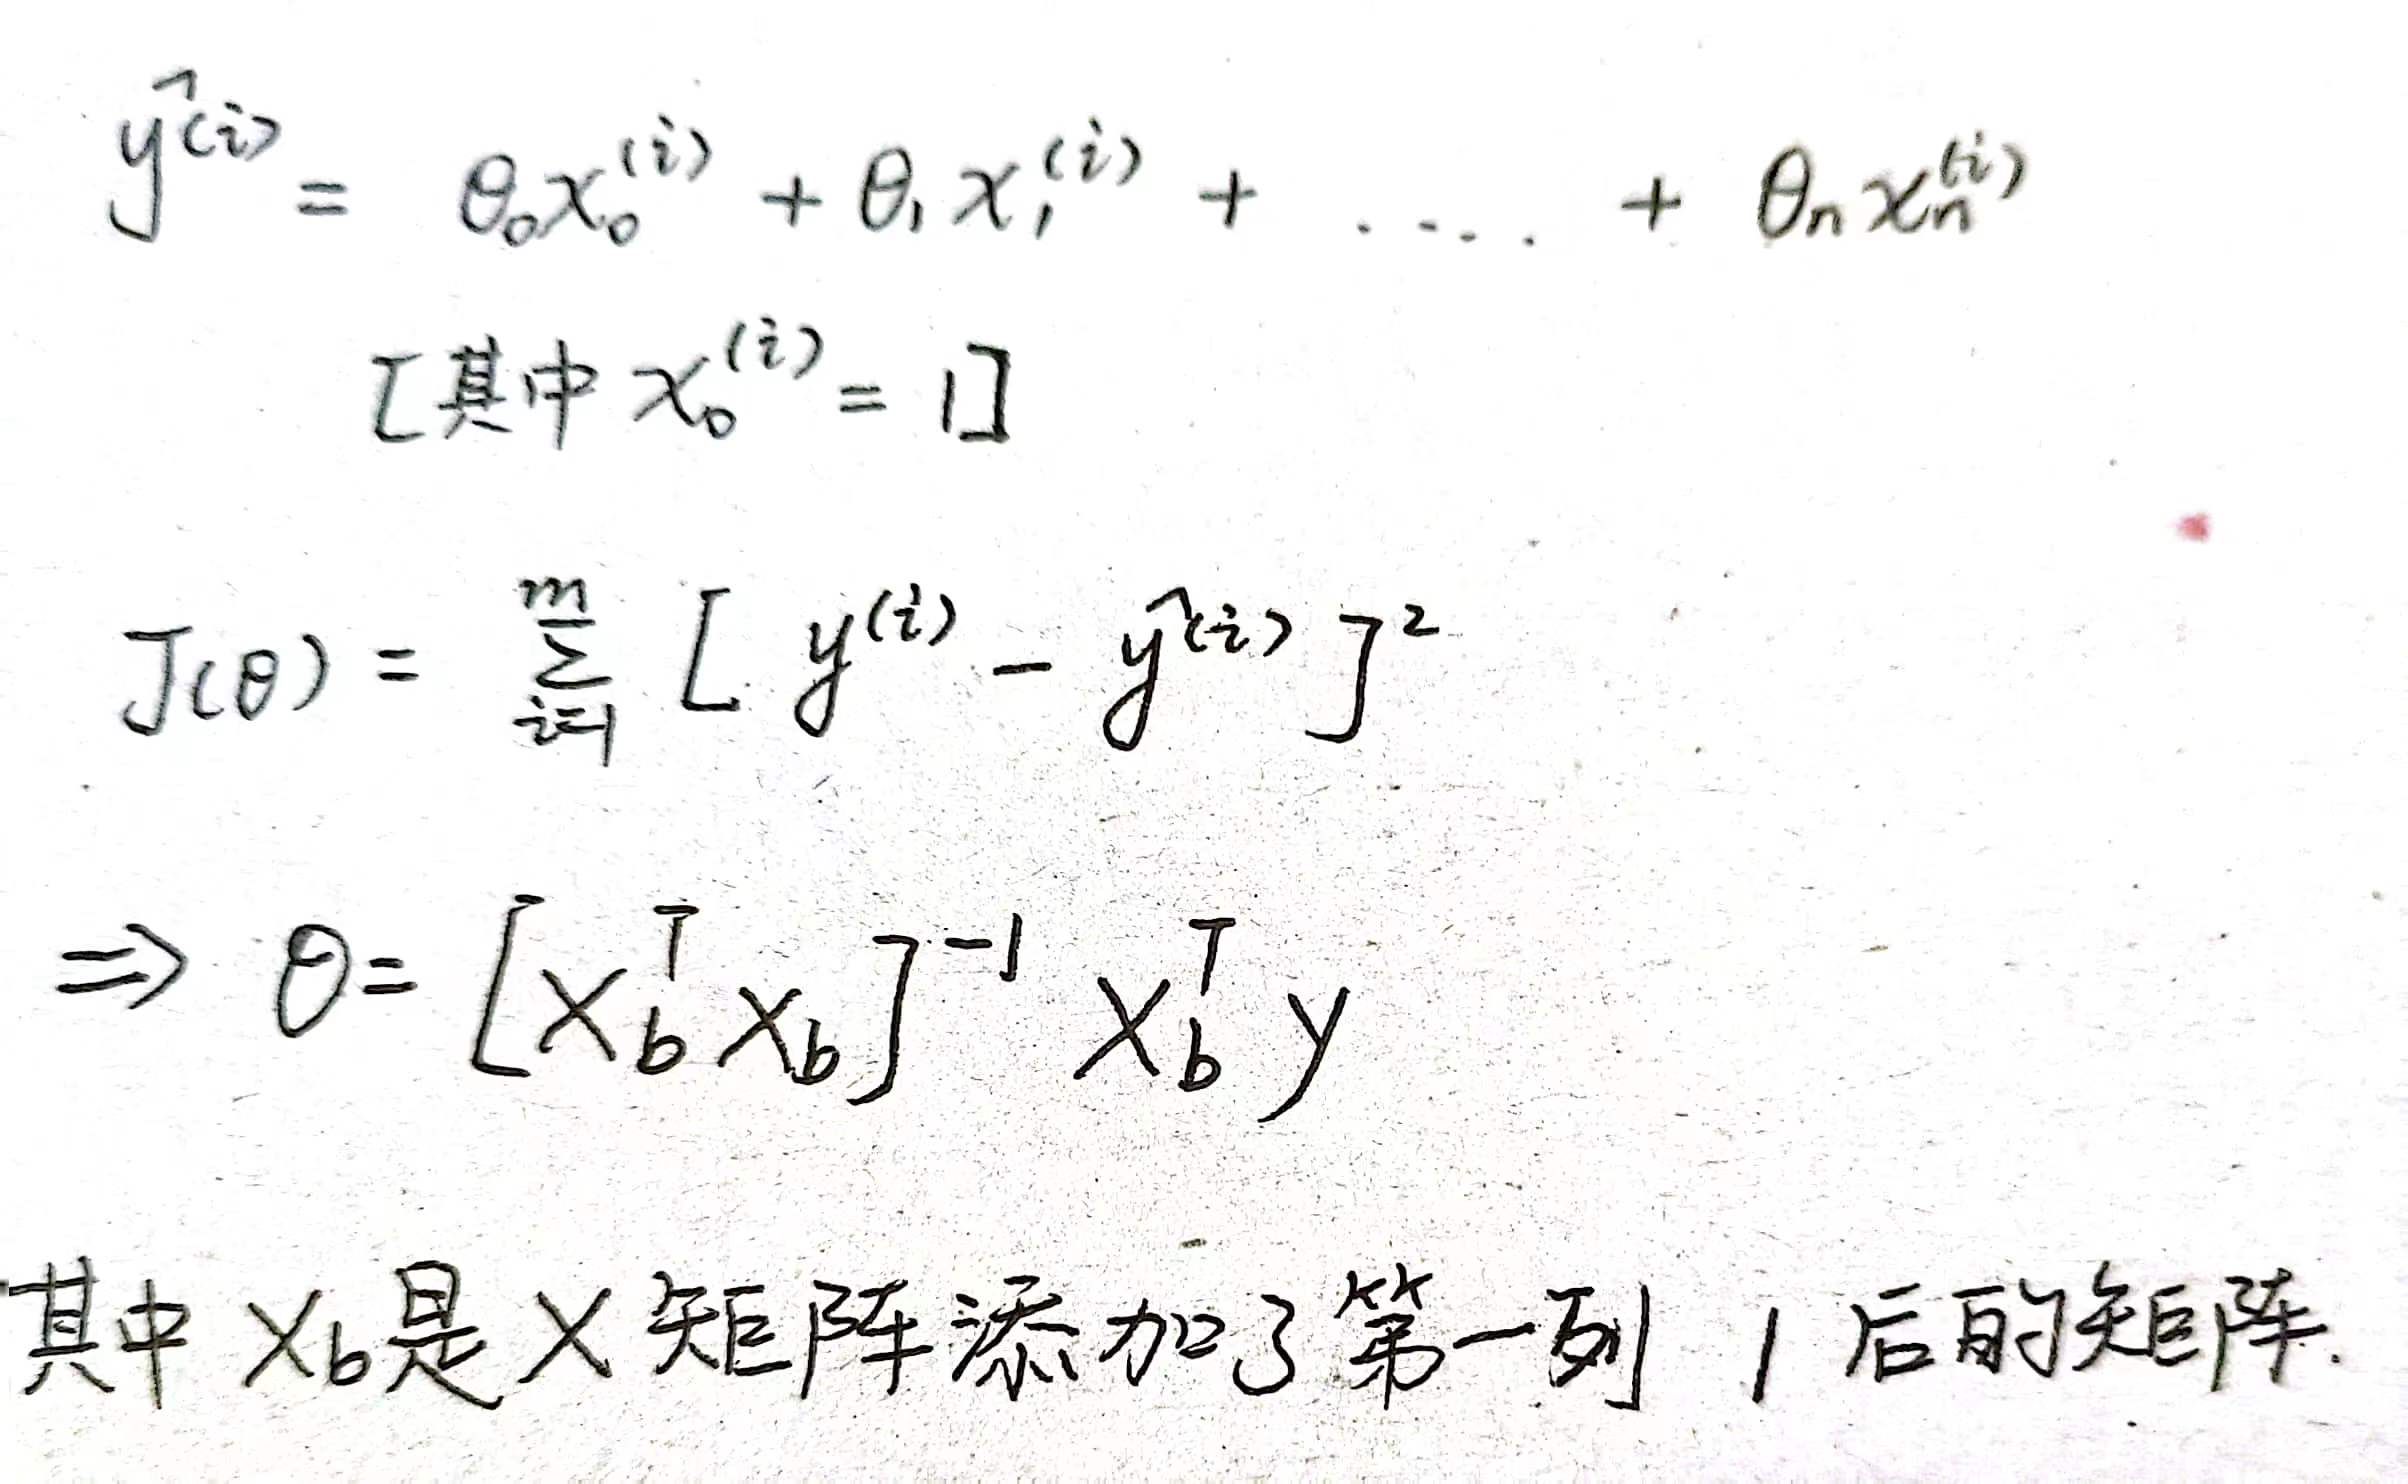 ŷ⁽ⁱ⁾ = θ₀x₀⁽ⁱ⁾ + θ₁x₁⁽ⁱ⁾ + ..... + θₙxₙ⁽ⁱ⁾
[其中 x₀⁽ⁱ⁾ = 1]
J(θ) = ∑ᵢ₌₁ᵐ [y⁽ⁱ⁾ - ŷ⁽ⁱ⁾]²
⇒ θ = [X_bᵀX_b]⁻¹ X_bᵀy
其中 X_b是 X 矩阵添加了第一列 1 后的矩阵.